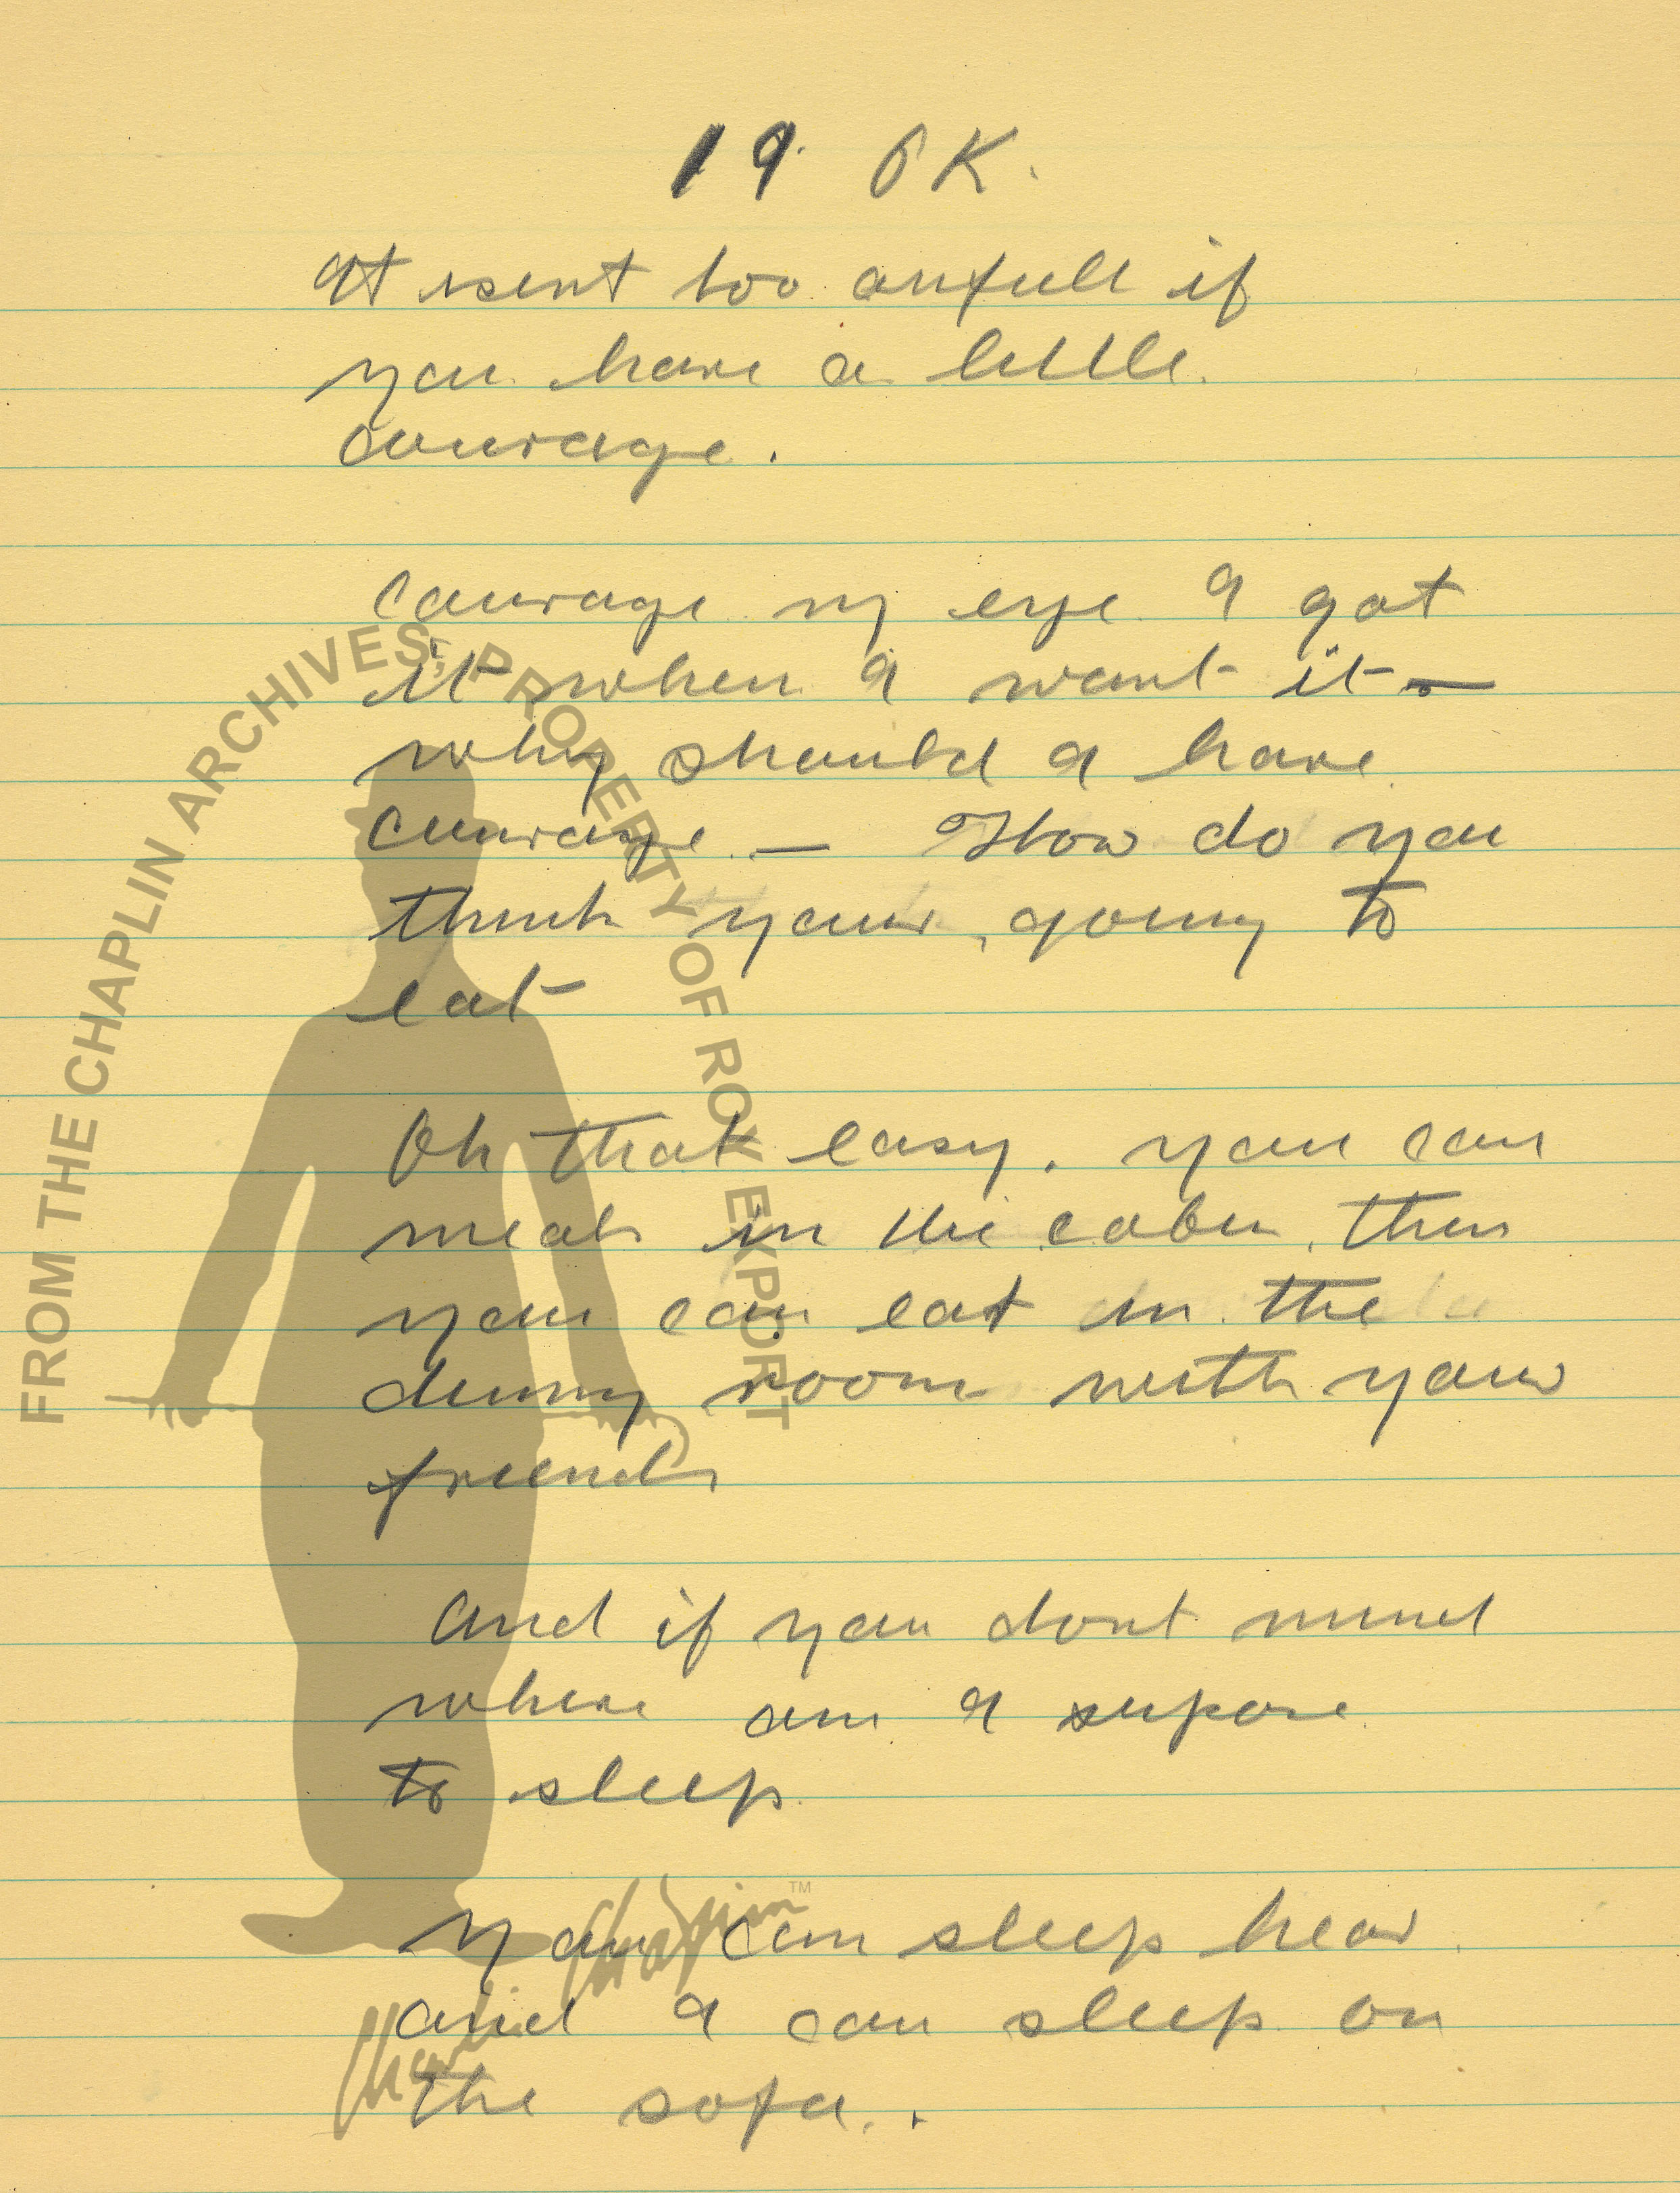 19. OK.
It isent too awfull if
you have a little
courage.
Courage my eye I got
it when I want it —
why should I have
courage — How do you
think your going to
eat
Oh that easy. you can
meals in the caben then
you can eat in the
dinning room with your
friends
And if you dont mind
where am I supose
to sleep
You can sleep hear
and I can sleep on
the sofa.
FROM THE CHAPLIN ARCHIVES, PROPERTY OF ROY EXPORT
Charlie Chaplin™